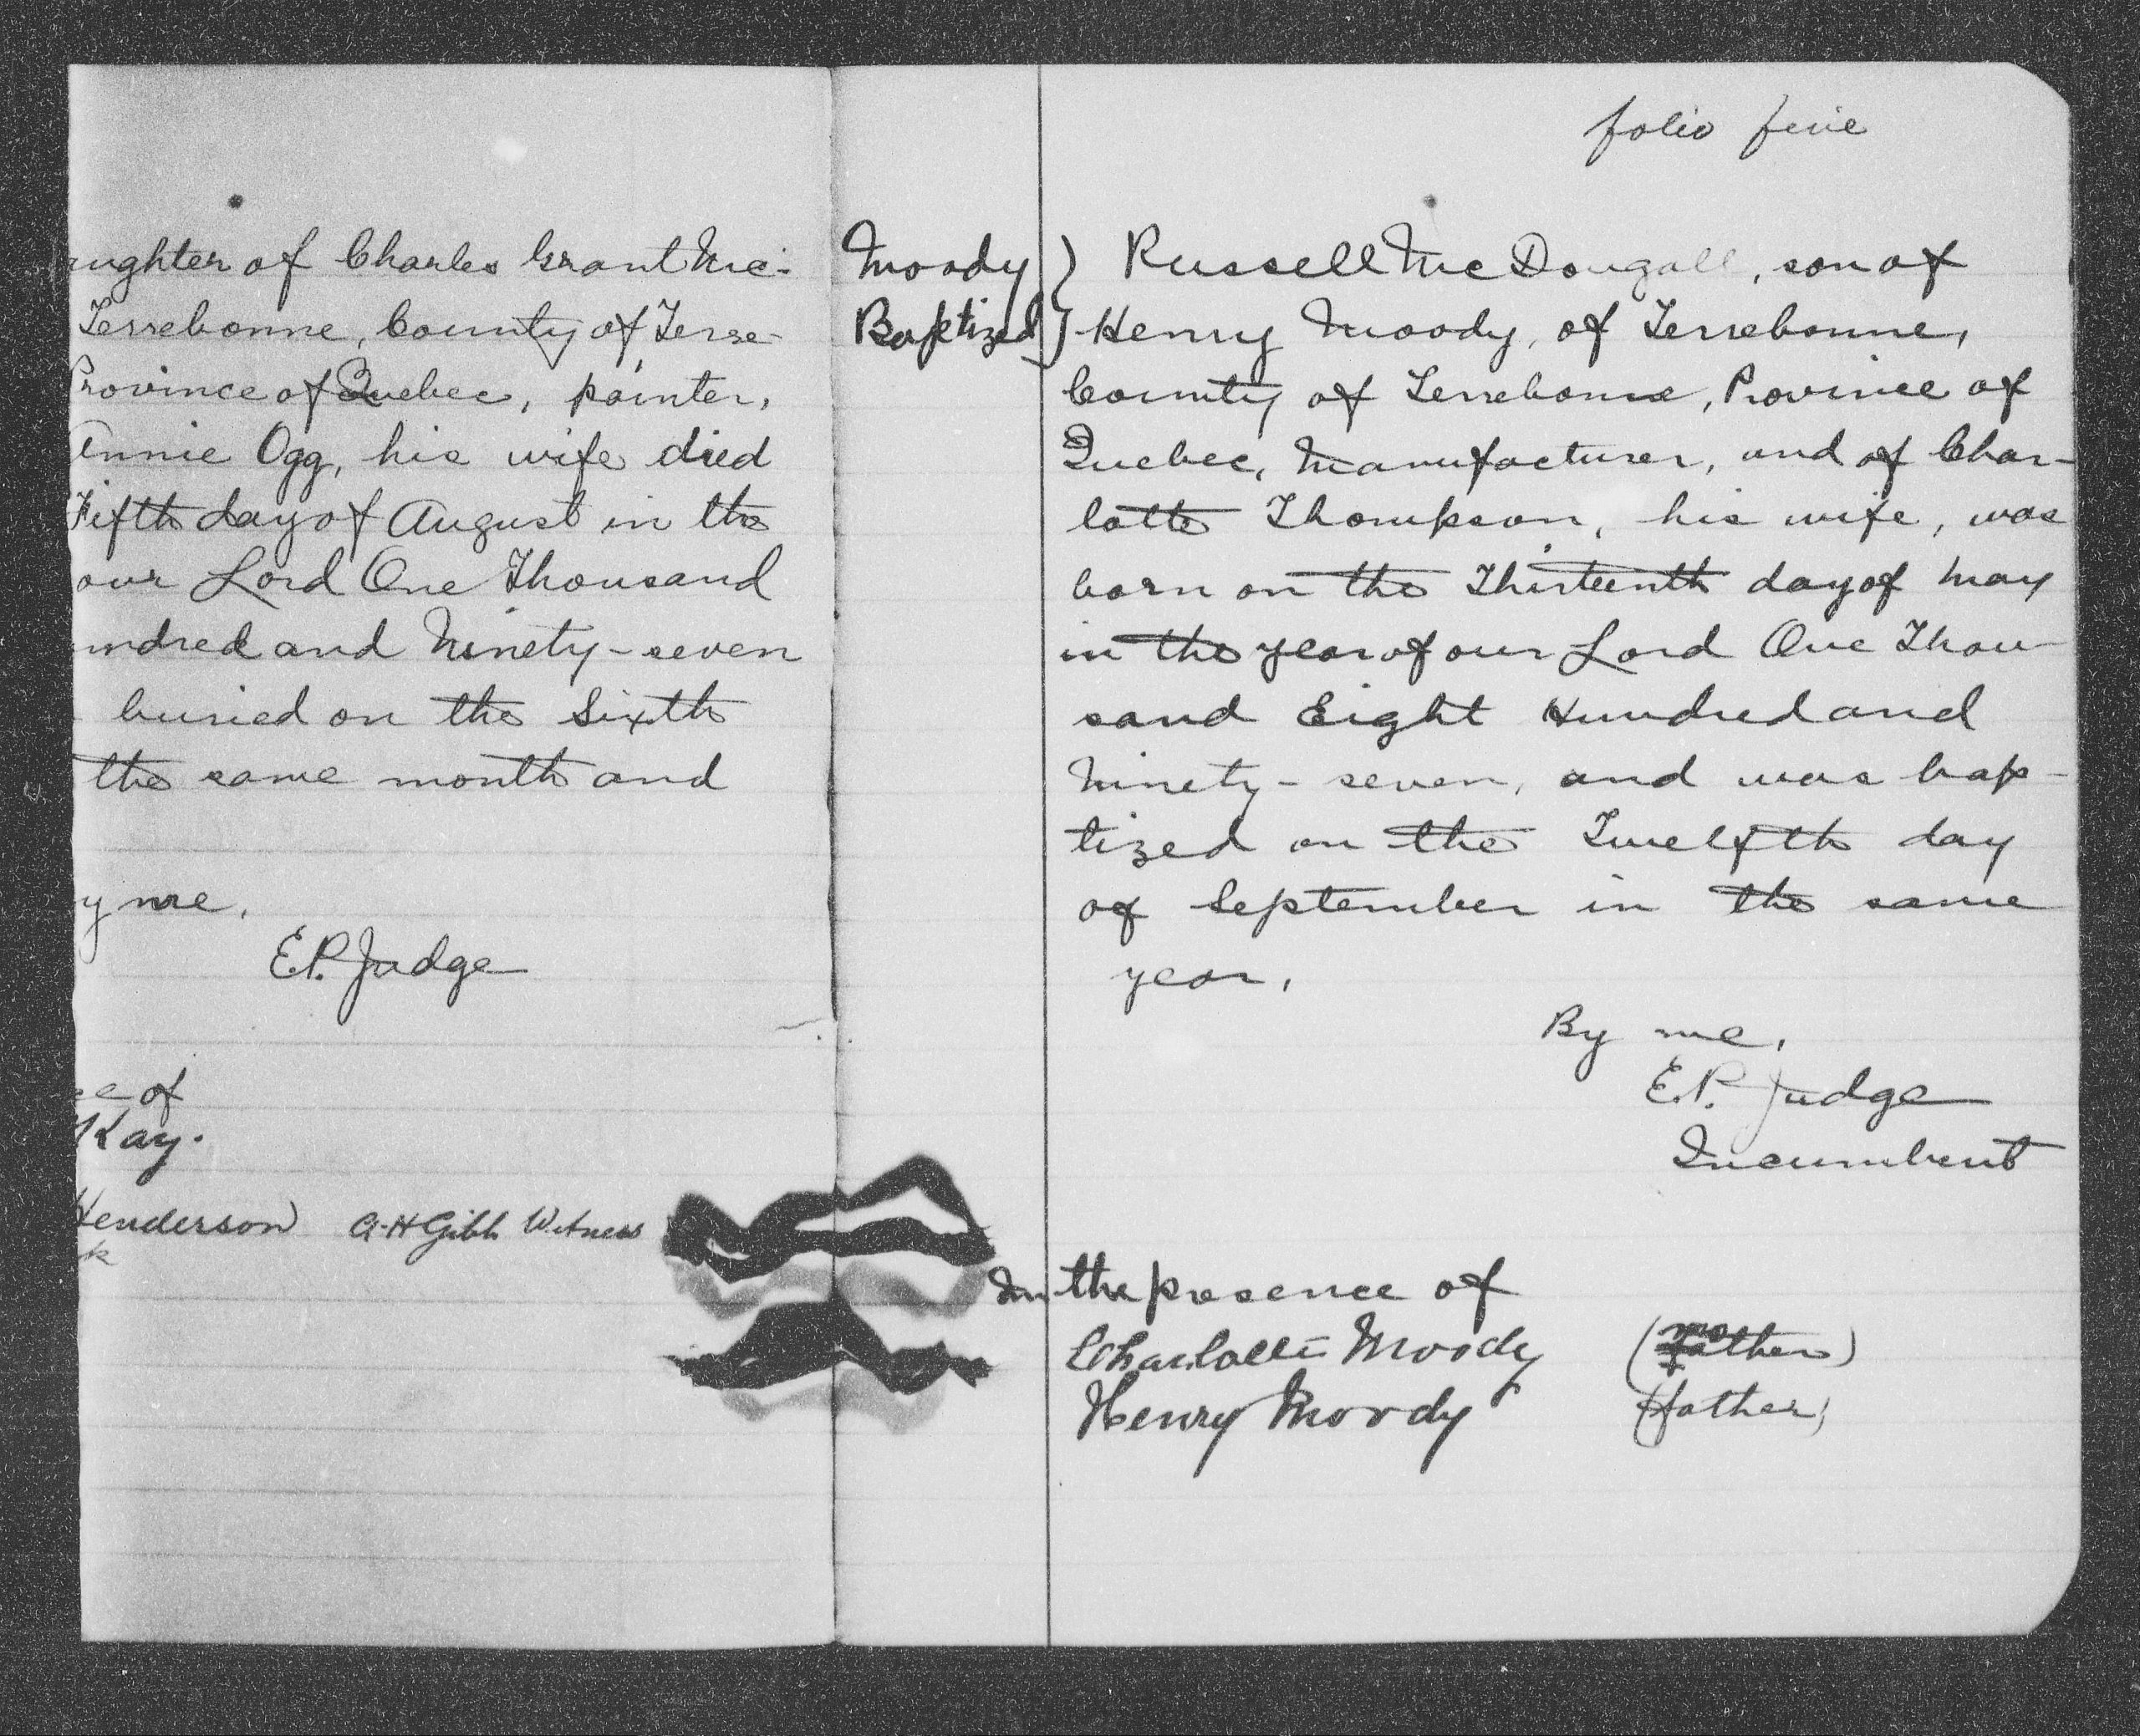 ughter of Charles Grant Mc-
Terrebonne, County of Terre-
Province of Quebec, painter,
Annie Ogg, his wife died
Fifth day of August in the
our Lord One Thousand
undred and Ninety-seven
buried on the Sixth
the same month and
y me,
E.P. Judge
ce of
Kay.
Henderson A-H Gibb Witness
k
folio five
Moody
Baptized
Russell McDougall, son of
Henry Moody, of Terrebonne,
County of Terrebonne, Province of
Quebec, Manufacturer, and of Char-
lotte Thompson, his wife, was
born on the Thirteenth day of May
in the year of our Lord One Thou-
sand Eight Hundred and
Ninety-seven, and was bap-
tized on the Twelfth day
of September in the same
year,
By me,
E.P. Judge
Incumbent
In the presence of
Charlotte Moody (mother)
Henry Moody (father)